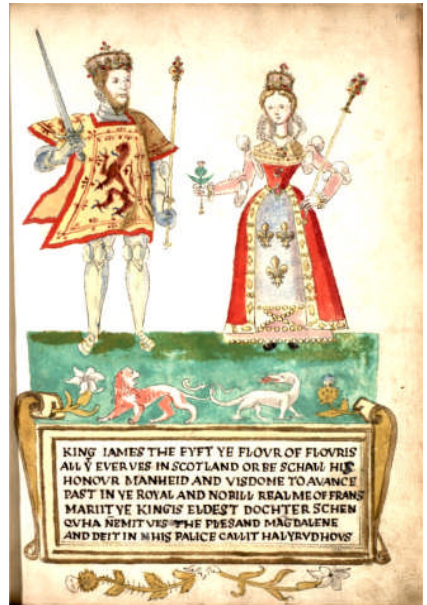 KING IAMES THE FYFT YE FLOVR OF FLOVRIS
ALL Y EVER VES IN SCOTLAND OR BE SCHALL HIS
HONOVR MANHEID AND VISDOME TO AVANCE
PAST IN YE ROYAL AND NOBILL REALME OF FRANS
MARIIT YE KINGIS ELDEST DOCHTER SCHEN
QVHA ÑEMIT VES THE PLESAND MAGDALENE
AND DEIT IN HIS PALICE CALLIT HALYRVDHOVS